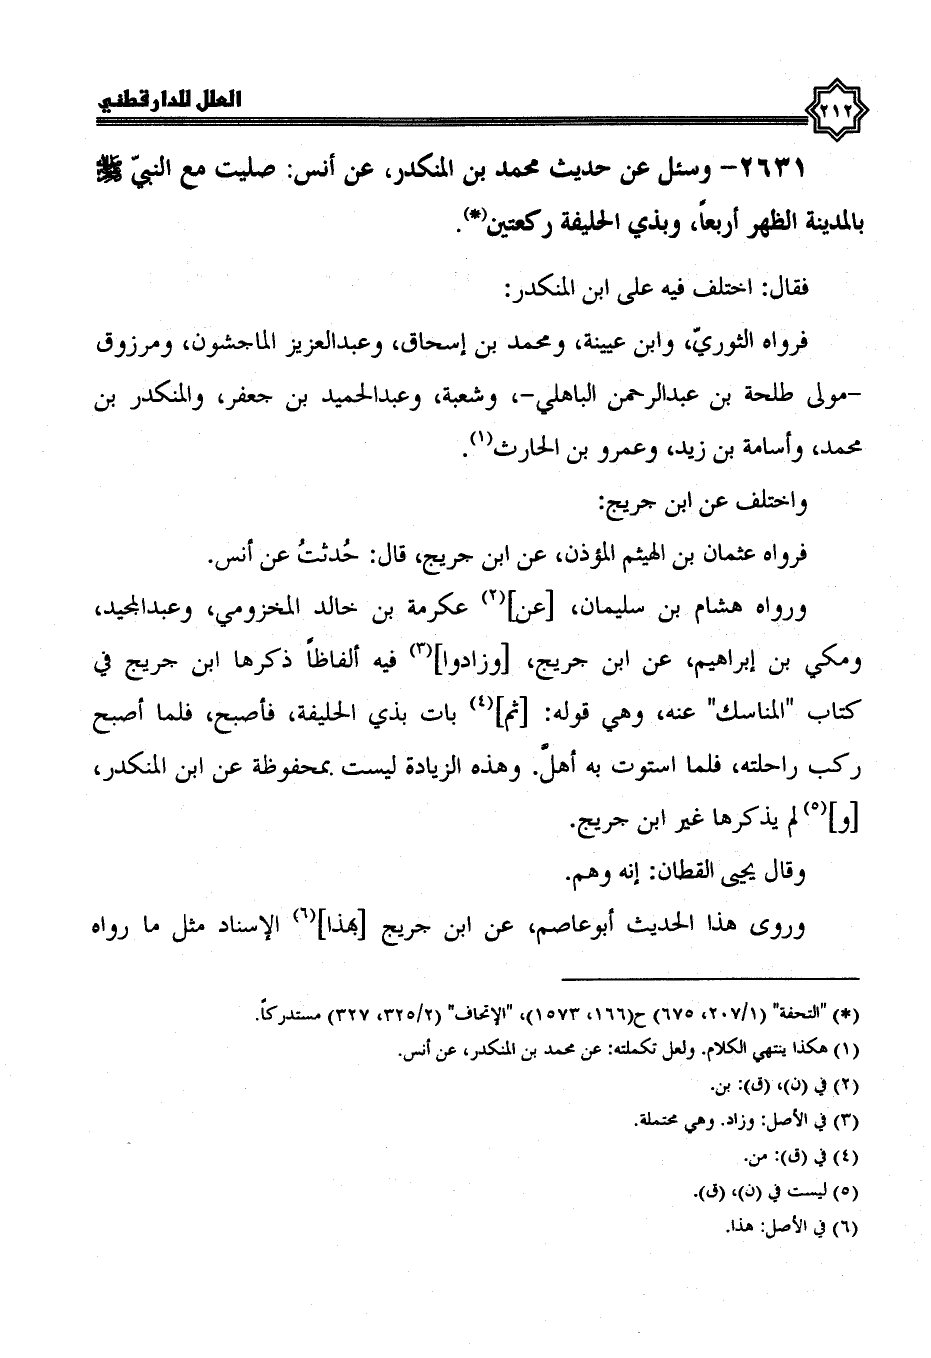 العلل للدارقطني
٢١٢
٢٦٣١- وسئل عن حديث محمد بن المنكدر، عن أنس: صليت مع النبيّ ﷺ
بالمدينة الظهر أربعاً، وبذي الحليفة ركعتين(*).
فقال: اختلف فيه على ابن المنكدر:
فرواه الثوريّ، وابن عيينة، ومحمد بن إسحاق، وعبدالعزيز الماجشون، ومرزوق
-مولى طلحة بن عبدالرحمن الباهلي-، وشعبة، وعبدالحميد بن جعفر، والمنكدر بن
محمد، وأسامة بن زيد، وعمرو بن الحارث(١).
واختلف عن ابن جريج:
فرواه عثمان بن الهيثم المؤذن، عن ابن جريج، قال: حُدثتُ عن أنس.
ورواه هشام بن سليمان، [عن](٢) عكرمة بن خالد المخزومي، وعبدالمجيد،
ومكي بن إبراهيم، عن ابن جريج، [وزادوا](٣) فيه ألفاظاً ذكرها ابن جريج في
كتاب "المناسك" عنه، وهي قوله: [ثم](٤) بات بذي الحليفة، فأصبح، فلما أصبح
ركب راحلته، فلما استوت به أهلَّ. وهذه الزيادة ليست بمحفوظة عن ابن المنكدر،
[و](٥) لم يذكرها غير ابن جريج.
وقال يحيى القطان: إنه وهم.
وروى هذا الحديث أبوعاصم، عن ابن جريج [بهذا](٦) الإسناد مثل ما رواه
(*) "التحفة" (٢٠٧/١، ٦٧٥) ح(١٦٦، ١٥٧٣)، "الإتحاف" (٣٢٥/٢، ٣٢٧) مستدركاً.
(١) هكذا ينتهي الكلام. ولعل تكملته: عن محمد بن المنكدر، عن أنس.
(٢) في (ن)، (ق): بن.
(٣) في الأصل: وزاد. وهي محتملة.
(٤) في (ق): من.
(٥) ليست في (ن)، (ق).
(٦) في الأصل: هذا.